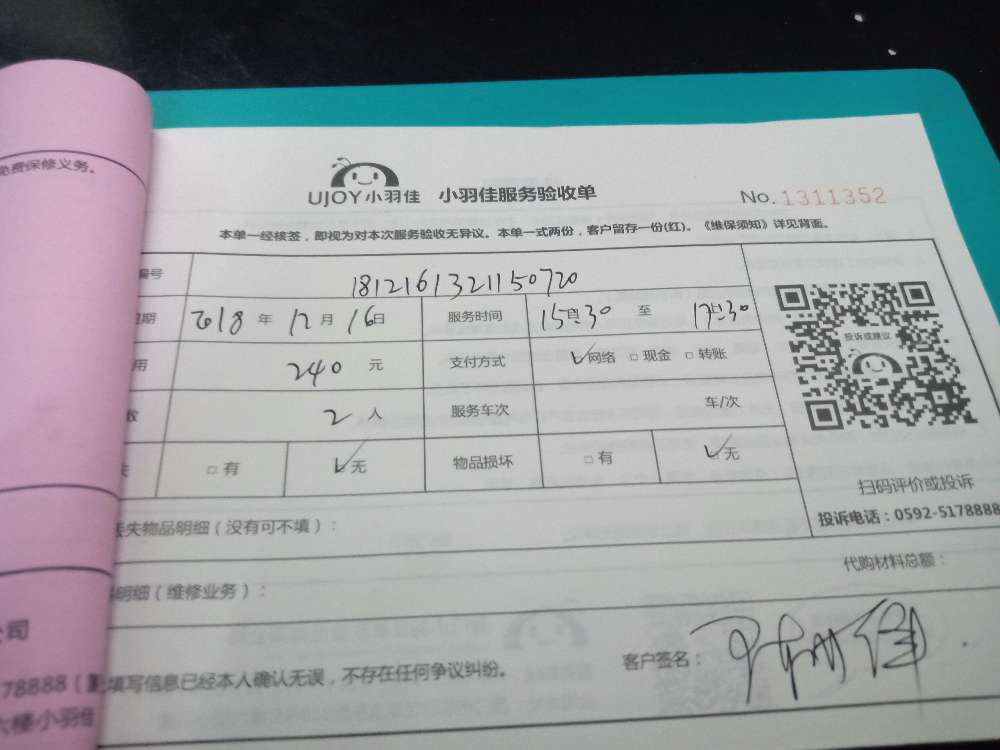 免费保修义务。
UJOY小羽佳 小羽佳服务验收单
No.1311352
本单一经核签，即视为对本次服务验收无异议。本单一式两份，客户留存一份(红)。《维保须知》详见背面。
编号 1812161321150720
日期 2018 年 12 月 16 日 服务时间 15:30 至 17:30
用 240 元 支付方式 ☑网络 □现金 □转账
数 2 人 服务车次 车/次
失 □有 ☑无 物品损坏 □有 ☑无
投诉或建议
扫码评价或投诉
投诉电话：0592-5178888
丢失物品明细（没有可不填）：
明细（维修业务）： 代购材料总额：
公司
78888（
填写信息已经本人确认无误，不存在任何争议纠纷。 客户签名：
六楼小羽佳